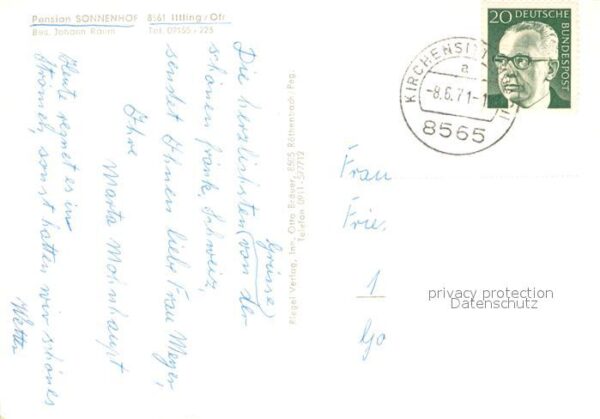 Pension SONNENHOF 8561 Ittling/Ofr
Bes. Johann Raum
Tel. 09155/225
Die herzlichsten (von der
Grüsse)
schönen fränk. Schweiz,
sendet Ihnen liebe Frau Meyer,
Ihre
Marta Mohnhaupt
Heute regnet es in
Strömen, sonst hatten wir schönes
Wetter
Riegel Verlag, Inh. Otto Brauer, 8505 Röthenbach Peg.
Telefon 0911-577712
20 DEUTSCHE
BUNDESPOST
KIRCHENSITTENBACH
a
-8.6.71-1
8565
Frau
Frie
1
Go
privacy protection
Datenschutz